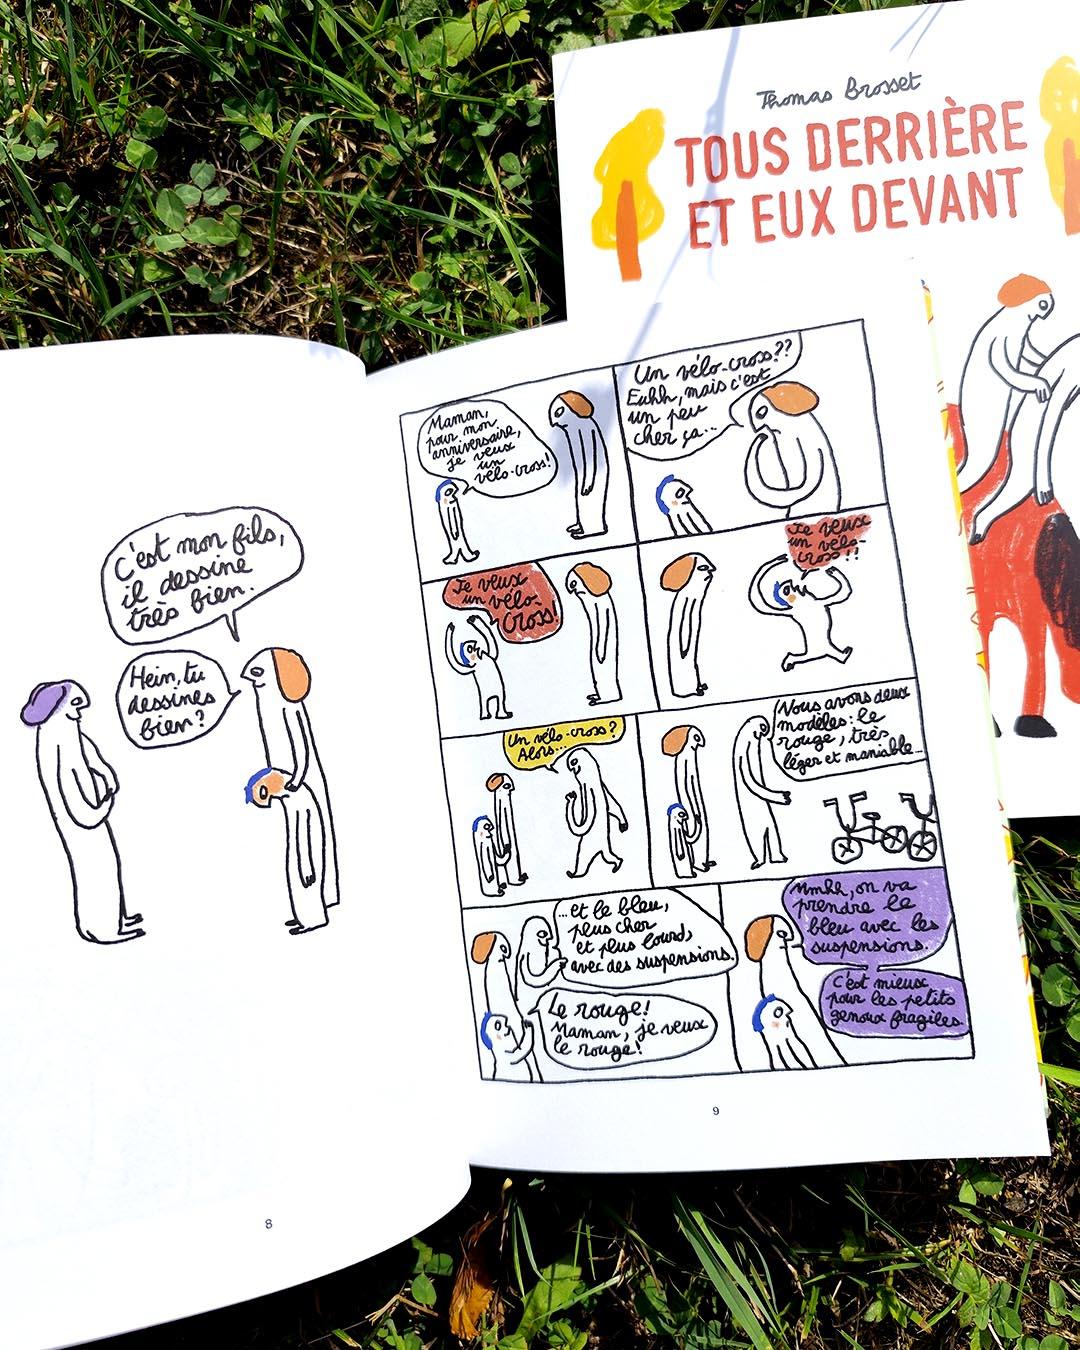 Thomas Brosset
TOUS DERRIÈRE
ET EUX DEVANT
C'est mon fils,
il dessine
très bien.
Hein, tu
dessines
bien?
8
Maman,
pour mon
anniversaire,
je veux
un
vélo-cross!
Un vélo-cross??
Euhh, mais c'est
un peu
cher ça...
Je veux
un vélo-
cross!
Je veux
un vélo-
cross!!
Un vélo-cross?
Alors...
Nous avons deux
modèles: le
rouge, très
léger et maniable...
...et le bleu,
plus cher
et plus lourd,
avec des suspensions.
Le rouge!
Maman, je veux
le rouge!
Mmhh, on va
prendre le
bleu avec les
suspensions.
C'est mieux
pour les petits
genoux fragiles.
9